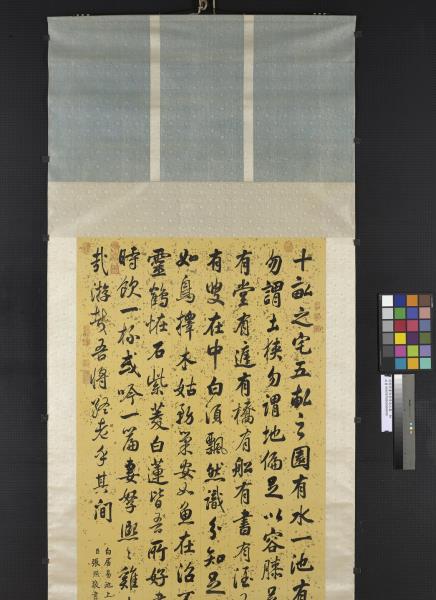 十畝之宅五畝之園有水一池有
勿謂土狹勿謂地偏足以容膝足
有堂有庭有橋有船有書有酒
有叟在中白須飄然識分知足
如鳥擇木姑務巢安如魚在沼不
靈鶴怪石紫菱白蓮皆吾所好
時飲一杯或吟一篇妻孥熙〻雞
哉游哉吾將終老乎其間
白居易池上
張照敬